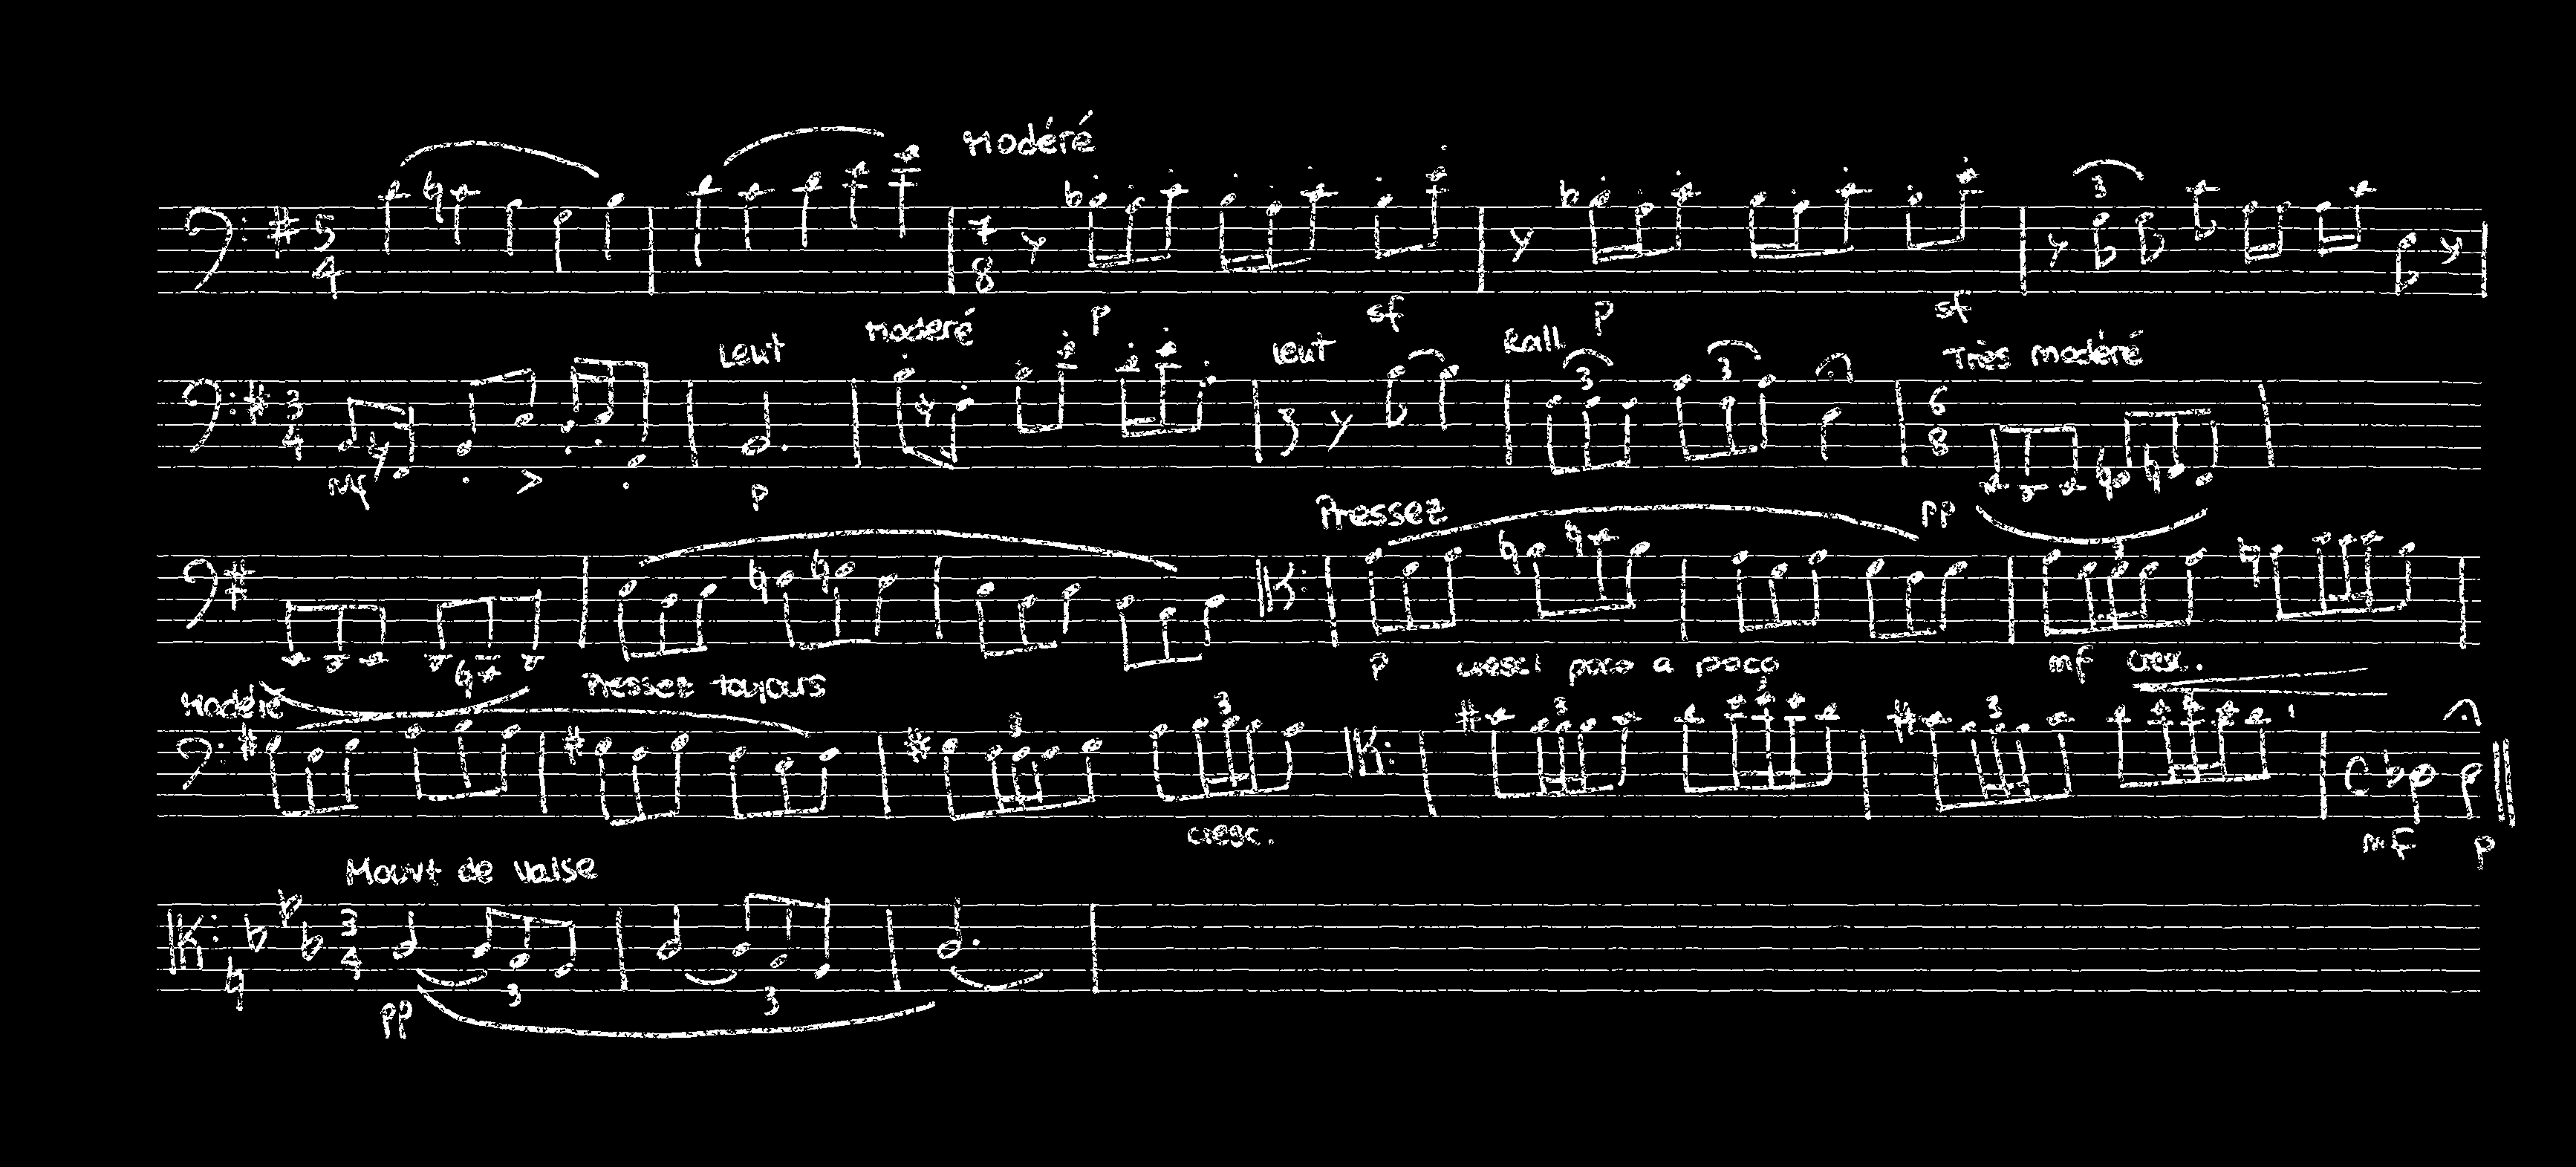 Modéré
5 4 7 8 3
p sf p sf
Lent Moderé Lent Rall Très modéré
3 4 3 3 6 8
mf p pp
Pressez
3
p cresc poco a poco mf cresc.
Modéré Pressez toujours
3 3 3 3 3
cresc. mf p
Mouvt de valse
3 4
pp 3 3